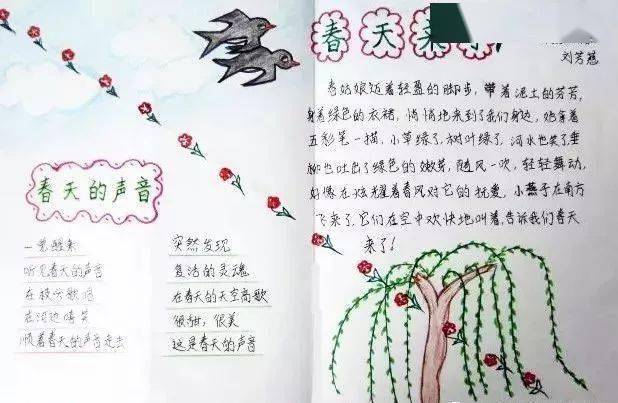 春天的声音
一觉醒来
听见春天的声音
在枝头歌唱
在河边嘻笑
顺着春天的声音走去
突然发现
复活的灵魂
在春天的天空高歌
很甜，很美
这是春天的声音
春天来了
刘芳慧
春姑娘迈着轻盈的脚步，带着泥土的芳芳，
身着绿色的衣裙，悄悄地来到了我们身边，她拿着
五彩笔一描，小草绿了，树叶绿了，河水也笑了垂
柳也吐出了绿色的嫩芽，随风一吹，轻轻舞动，
好像在炫耀着春风对它的抚爱，小燕子在南方
飞来了，它们在空中欢快地叫着，告诉我们春天
来了！